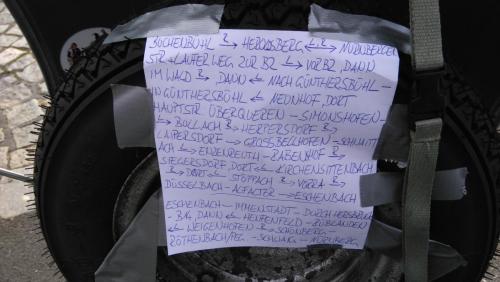 BUCHENBÜHL → HEROLDSBERG ← NÜRNBERGER
STR + LAUFER WEG ZUR B2 ↳ VOR B2, DANN
IM WALD → DANN ← NACH GÜNTHERSBÜHL –
IN GÜNTHERSBÜHL ← NEUNHOF, DORT
HAUPTSTR. ÜBERQUEREN – SIMONSHOFEN –
← BULLACH → HERPERSDORF →
LAIPERSDORF → GROSSBELLHOFEN – SCHNAITT
ACH ← ENZENREUTH – RABENHOF →
SIEGERSDORF, DORT ← KIRCHENSITTENBACH
→ DORT ← STÖPPACH → VORRA →
DÜSSELBACH – ALFALTER → ESCHENBACH
ESCHENBACH – IMMENSTADT – DURCH HERSBRUCK
– B14, DANN ← HENFENFELD –
← WEIGENHOFEN → SCHÖNBERG –
RÖTHENBACH/PEG. – SCHWAIG – NÜRNBERG